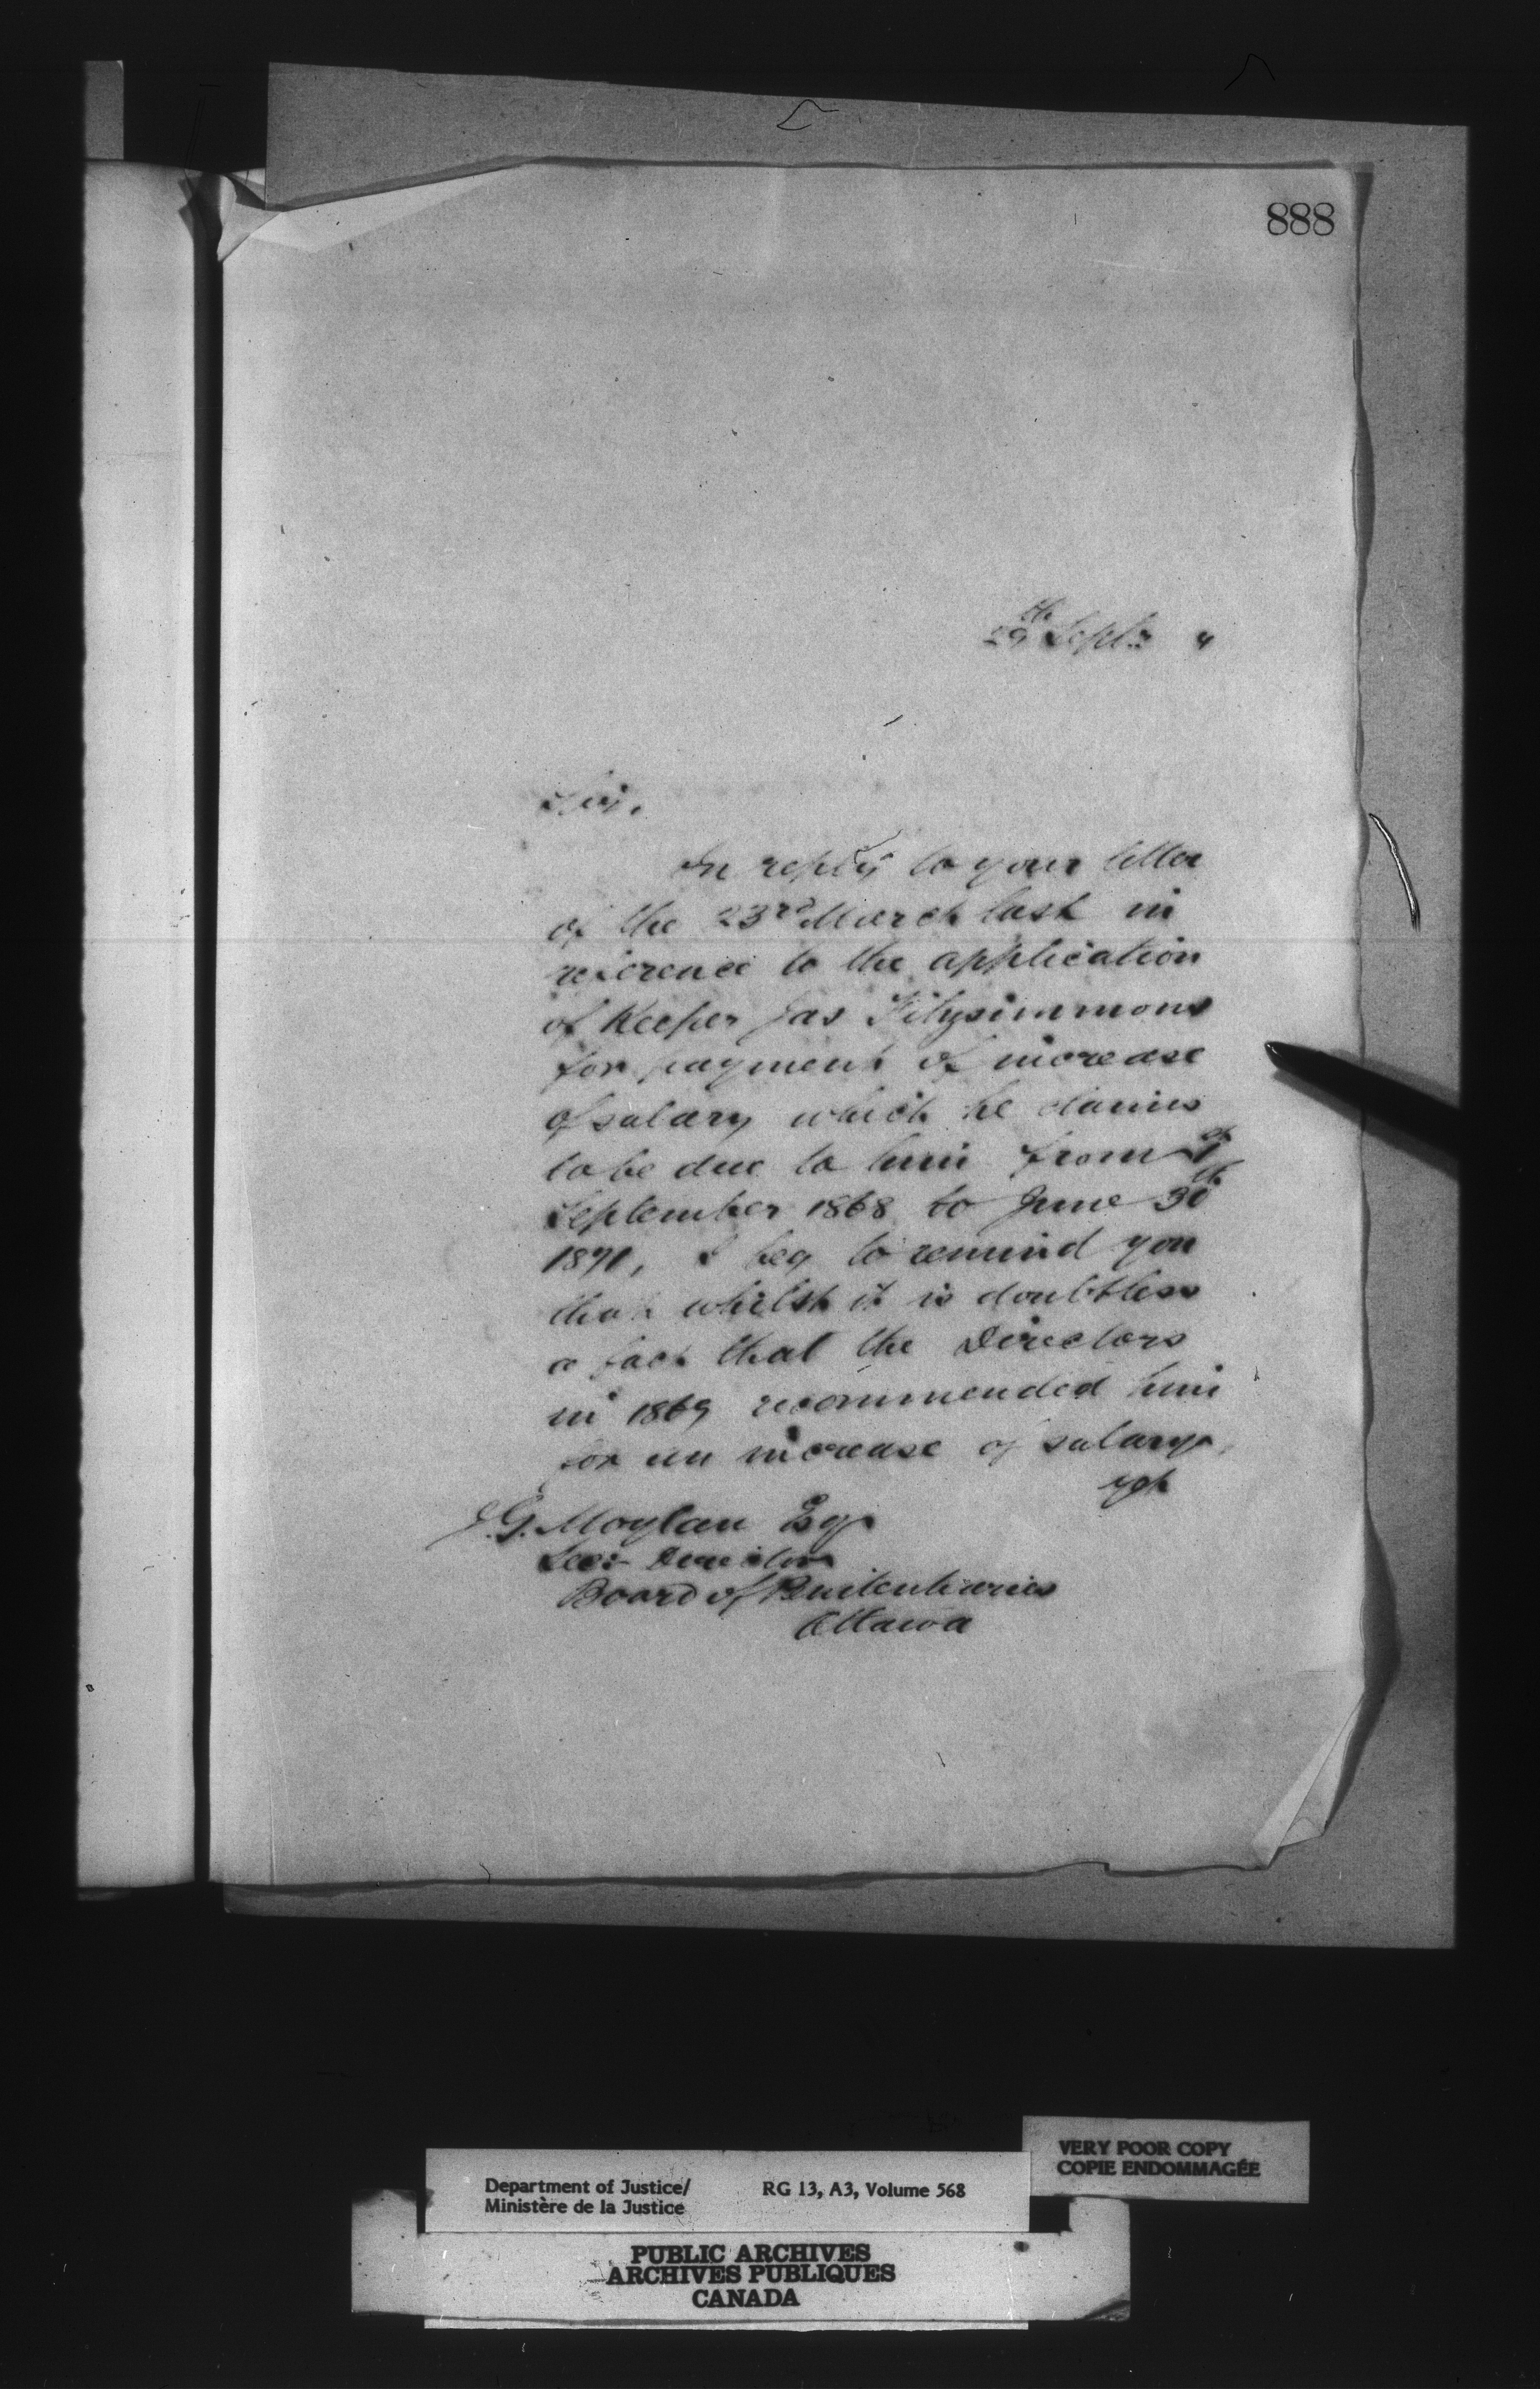 888
29th Septr 4
Sir,
In reply to your letter
of the 23rd March last in
reference to the application
of Keeper Jas Fitzsimmons
for payment of increase
of salary which he claims
to be due to him from 1st
September 1868 to June 30th
1871, I beg to remind you
that whilst it is doubtless
a fact that the Directors
in 1869 recommended him
for an increase of salary,
yet
J.G. Moylan Esqr
Director
Board of Penitentiaries
Ottawa
VERY POOR COPY
COPIE ENDOMMAGÉE
Department of Justice/ RG 13, A3, Volume 568
Ministère de la Justice
PUBLIC ARCHIVES
ARCHIVES PUBLIQUES
CANADA